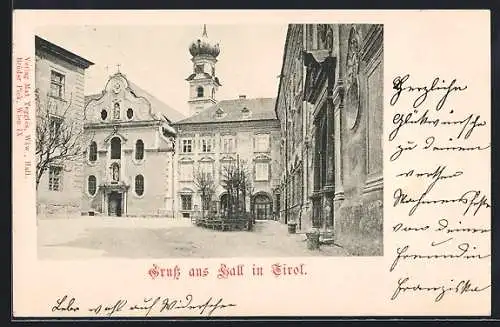 Verlag Max Teggler, Wtw., Hall.
Brüder Pichl, Wien IX.
Herzliche
Glückwünsche
zu deinem
werthen
Namensfeste
von deiner
Freundin
Franziska
Gruß aus Hall in Tirol.
Lebe wohl auf Wiedersehen